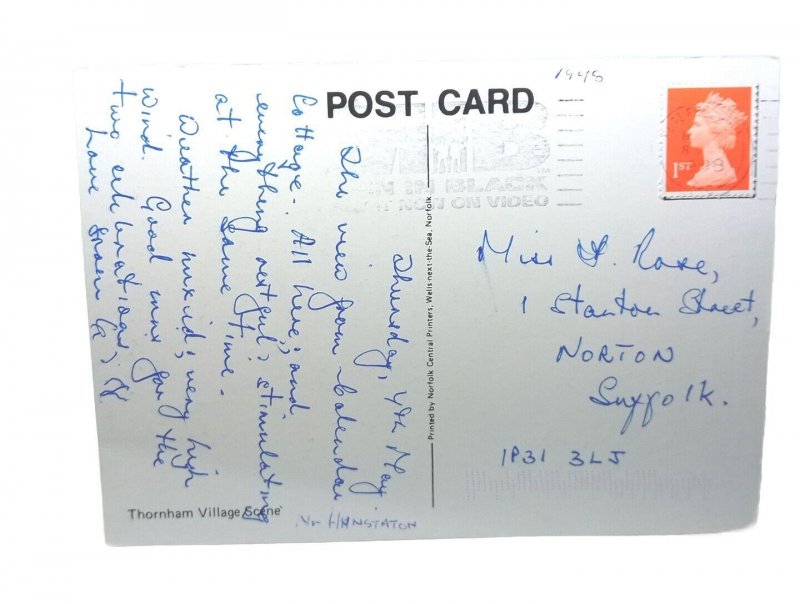 1948
POST CARD
IN BLACK
NOW ON VIDEO
1ST
Thursday, 4th May.
The view from Calendar
Cottage. All here, and
everything restful & stimulating
at the same time.
Weather mixed, very high
wind. Good inns for the
two celebrations
Love
Miss F. Rose,
1 Stanton Street,
NORTON
Suffolk.
IP31 3LJ
Printed by Norfolk Central Printers, Wells-next-the-Sea, Norfolk
Thornham Village Scene
Nr HUNSTATON